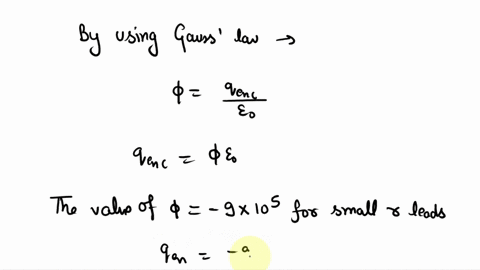 By using Gauss' law →
ϕ = qenc / ε0
qenc = ϕ ε0
The value of ϕ = -9×10^5 for small r leads
qen =